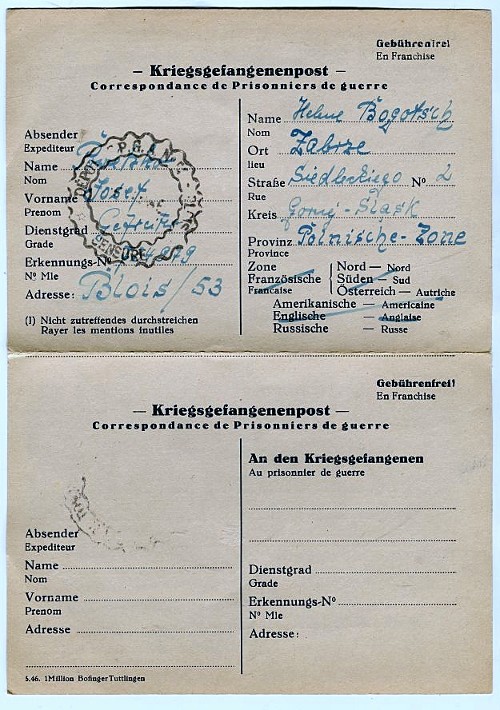 Gebührenfrei
En Franchise
— Kriegsgefangenenpost —
Correspondance de Prisonniers de guerre
Absender
Expediteur
Name
Nom
Vorname Josef
Prenom
Dienstgrad
Grade
Erkennungs-Nº
Nº Mle
Adresse: Blois/53
(I) Nicht zutreffendes durchstreichen
Rayer les mentions inutiles
DEPOT P.G.A.
CENSURE
Name Helene Bogotsch
Nom
Ort Zabrze
lieu
Straße Siedleckiego Nº 2
Kreis Gorny-Slask
Provinz Polnische-Zone
Province
Zone
Französische
Francaise
Nord — Nord
Süden — Sud
Österreich — Autriche
Amerikanische — Americaine
Englische — Anglaise
Russische — Russe
Gebührenfrei!
En Franchise
— Kriegsgefangenenpost —
Correspondance de Prisonniers de guerre
Absender
Expediteur
Name
Nom
Vorname
Prenom
Adresse
5.46. 1 Million Bofinger Tuttlingen
An den Kriegsgefangenen
Au prisonnier de guerre
Dienstgrad
Grade
Erkennungs-Nº
Nº Mle
Adresse: